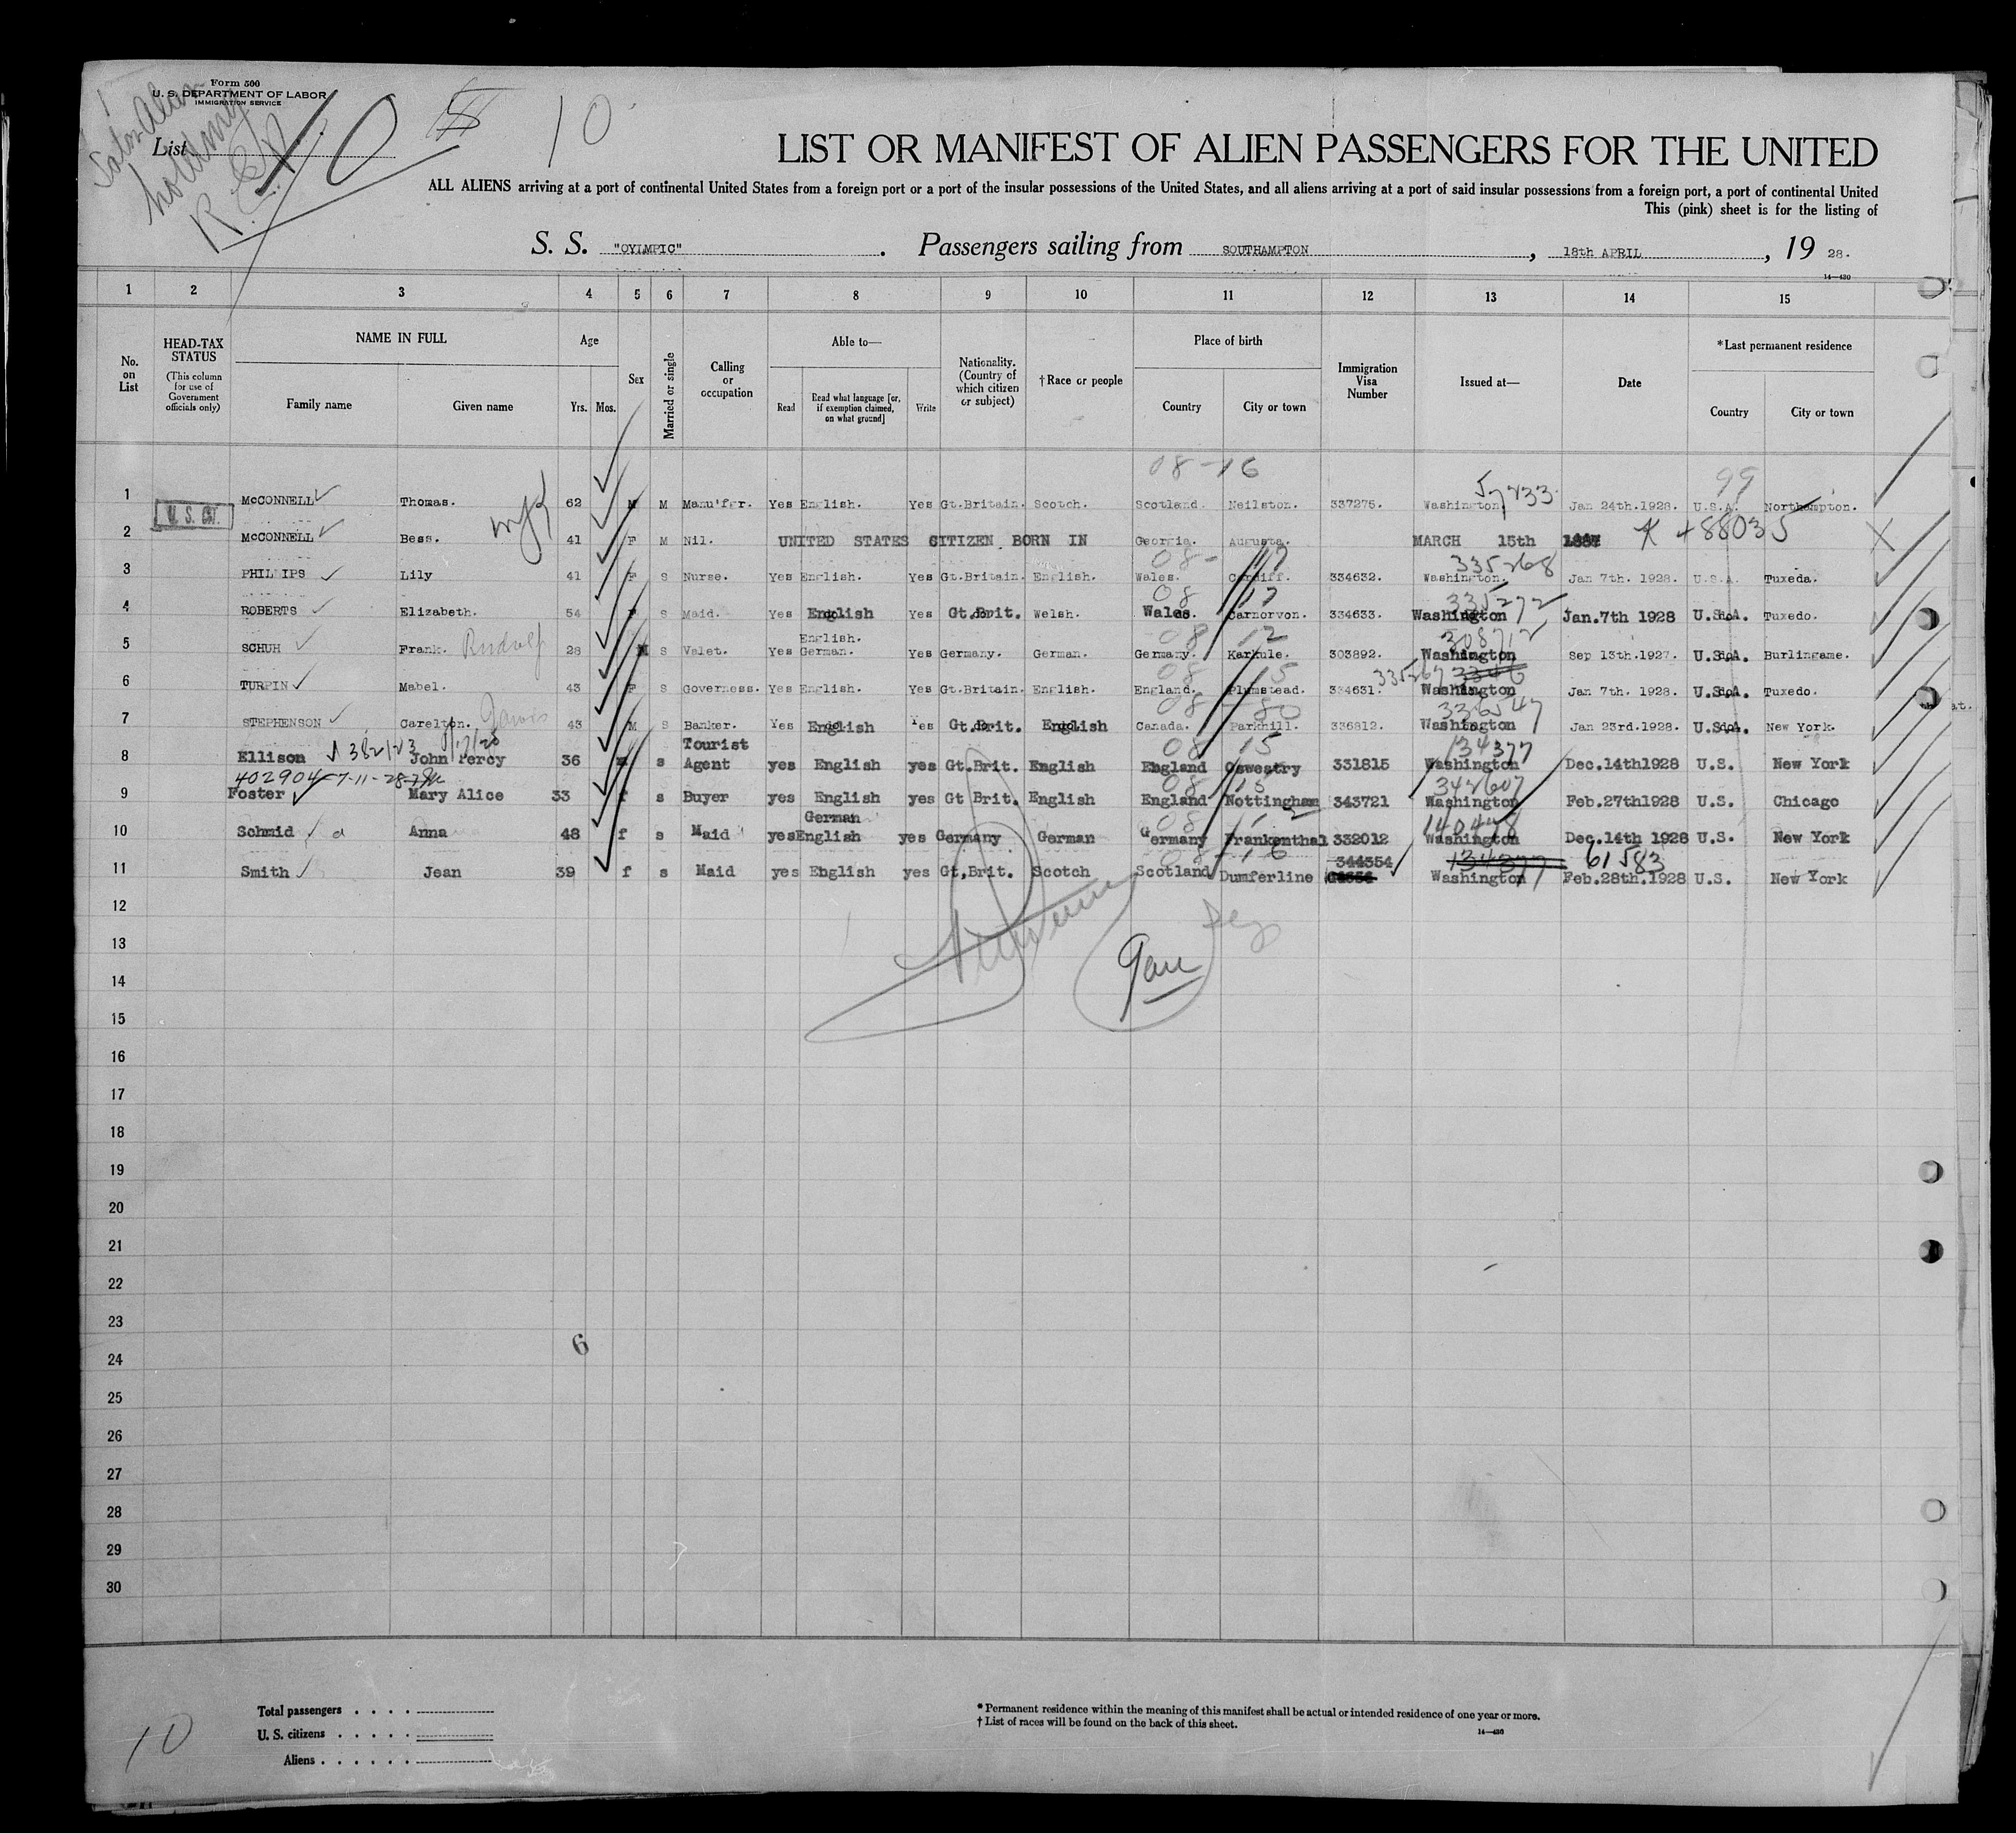 Form 500
U. S. DEPARTMENT OF LABOR
IMMIGRATION SERVICE
List 10
10
LIST OR MANIFEST OF ALIEN PASSENGERS FOR THE UNITED
ALL ALIENS arriving at a port of continental United States from a foreign port or a port of the insular possessions of the United States, and all aliens arriving at a port of said insular possessions from a foreign port, a port of continental United
This (pink) sheet is for the listing of
S. S. "OYLMPIC" . Passengers sailing from SOUTHAMPTON , 18th APRIL , 19 28.
14—430
1 2 3 4 5 6 7 8 9 10 11 12 13 14 15
No. on List
HEAD-TAX STATUS (This column for use of Government officials only)
NAME IN FULL Family name Given name
Age Yrs. Mos.
Sex
Married or single
Calling or occupation
Able to— Read Read what language [or, if exemption claimed, on what ground] Write
Nationality. (Country of which citizen or subject)
† Race or people
Place of birth Country City or town
Immigration Visa Number
Issued at—
Date
*Last permanent residence Country City or town
08-16 57233 99
1 McCONNELL Thomas. 62 M M Manu'fer. Yes English. Yes Gt.Britain. Scotch. Scotland. Neilston. 337275. Washington Jan 24th.1928. U.S.A. Northampton.
U. S. CIT.
2 McCONNELL Bess. 41 F M Nil. UNITED STATES CITIZEN BORN IN Georgia. Augusta. MARCH 15th 1887 488035
08- 17 335268
3 PHILLIPS Lily 41 F S Nurse. Yes English. Yes Gt.Britain. English. Wales. Cardiff. 334632. Washington. Jan 7th. 1928. U.S.A. Tuxeda.
08 17 335272
4 ROBERTS Elizabeth. 54 F S Maid. Yes English Yes Gt.Brit. Welsh. Wales. Carnorvon. 334633. Washington Jan.7th 1928 U.S.A. Tuxedo.
English. 08 12 308712
5 SCHUH Frank. Rudolf 28 M S Valet. Yes German. Yes Germany. German. Germany. Karhule. 303892. Washington Sep 13th.1927. U.S.A. Burlingame.
08 15 335267
6 TURPIN Mabel. 43 F S Governess. Yes English. Yes Gt.Britain. English. England. Plumstead. 334631. Washington Jan 7th. 1928. U.S.A. Tuxedo.
08 80 336547
7 STEPHENSON Carelton. 43 M S Banker. Yes English Yes Gt.Brit. English Canada. Parkhill. 336812. Washington Jan 23rd.1928. U.S.A. New York.
382123 Tourist 08 15 134377
8 Ellison John Percy 36 m s Agent yes English yes Gt.Brit. English England Oswestry 331815 Washington Dec.14th1928 U.S. New York
402904-7-11-28 08 15 342607
9 Foster Mary Alice 33 f s Buyer yes English yes Gt Brit. English England Nottingham 343721 Washington Feb.27th1928 U.S. Chicago
German 08 12 140478
10 Schmid Anna 48 f s Maid yes English yes Germany German Germany Frankenthal 332012 Washington Dec.14th 1928 U.S. New York
08-16 344354 134377 61583
11 Smith Jean 39 f s Maid yes English yes Gt.Brit. Scotch Scotland Dumferline Washington Feb.28th.1928 U.S. New York
12
13
14
15
16
17
18
19
20
21
22
23
6
24
25
26
27
28
29
30
10
Total passengers . . . .
U. S. citizens . . . . .
Aliens . . . . . .
* Permanent residence within the meaning of this manifest shall be actual or intended residence of one year or more.
† List of races will be found on the back of this sheet.
14—430